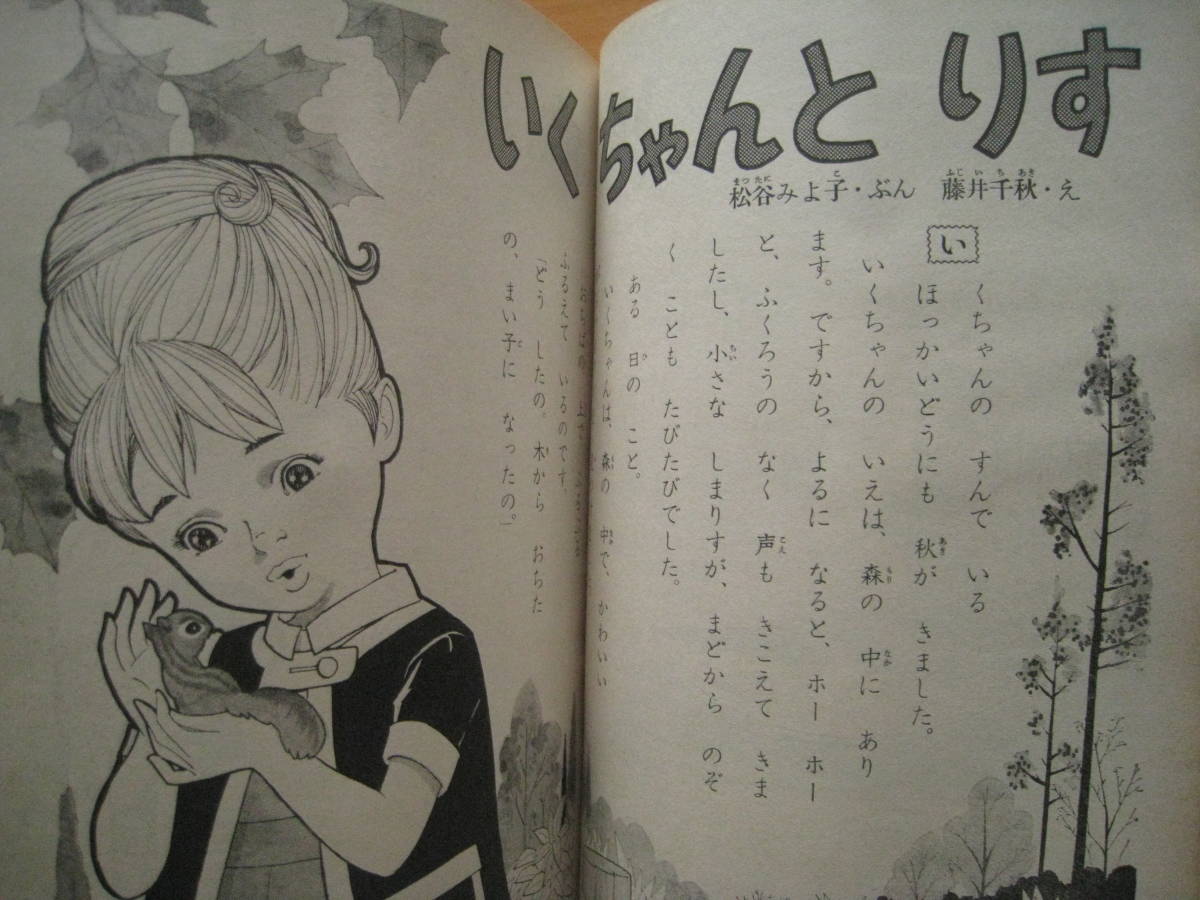 いくちゃんと りす
松谷みよ子・ぶん 藤井千秋・え
いくちゃんの すんで いる
ほっかいどうにも 秋が きました。
いくちゃんの いえは、森の 中に あり
ます。ですから、よるに なると、ホー ホー
と、ふくろうの なく 声も きこえて きま
したし、小さな しまりすが、まどから のぞ
く ことも たびたびでした。
ある 日の こと。
いくちゃんは、森の 中で、かわいい
おちばの 上で
ふるえて いるのです。
「どう したの。木から おちた
の、まい子に なったの。」